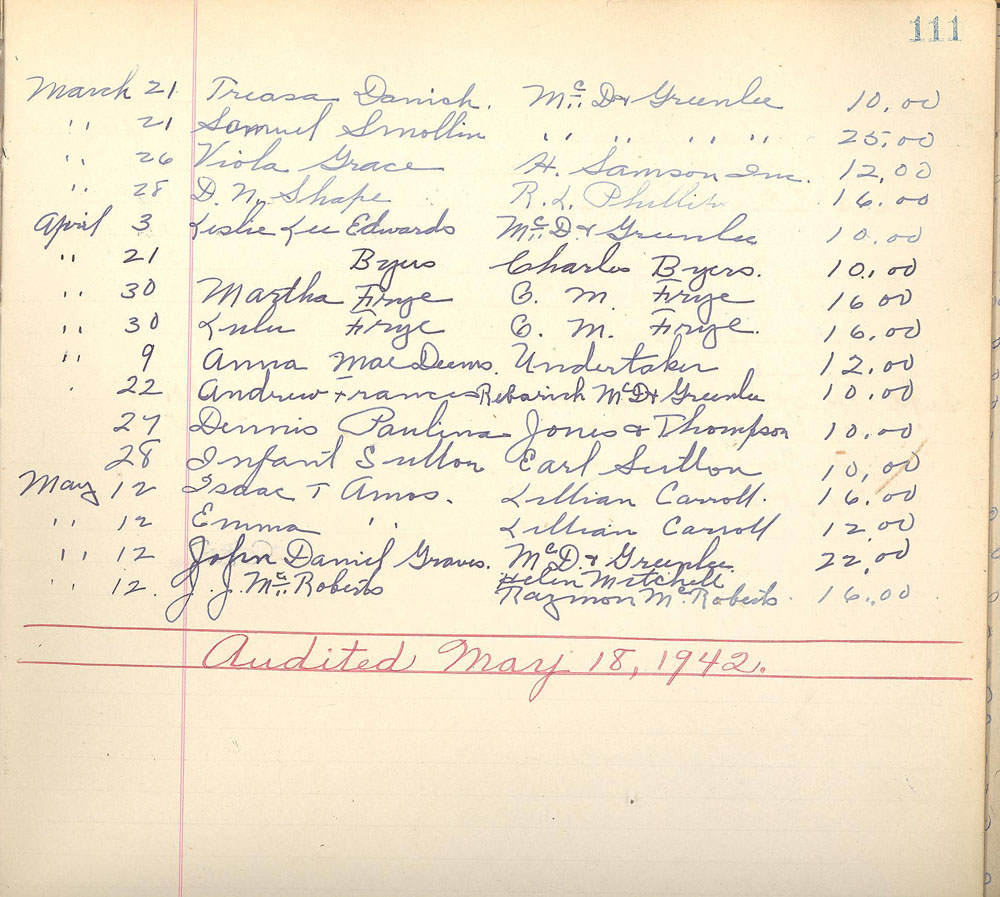 111
March 21 Treasa Danish. Mc D & Greenlee 10.00
" 21 Samuel Smollin " " " " 25.00
" 26 Viola Grace H. Samson Inc. 12.00
" 28 D. N. Shape R. L. Phillip 16.00
April 3 Leslie Lee Edwards Mc D. & Greenlee 10.00
" 21 Byers Charles Byers. 10.00
" 30 Martha Frye C. M. Frye 16 00
" 30 Lulu Frye C. M. Frye. 16.00
" 9 Anna Mae Deems. Undertaker 12.00
" 22 Andrew Frances Rebarich McD & Greenlee 10.00
27 Dennis Paulina Jones & Thompson 10.00
28 Infant Sutton Earl Sutton 10,00
May 12 Isaac T Amos. Lillian Carroll. 16.00
" 12 Emma " Lillian Carroll 12.00
" 12 John Daniel Graves. McD. & Greenlee. 22.00
Helen Mitchell
" 12. J. J. Mc Roberts Raymon Mc Roberts. 16.00
Audited May 18, 1942.